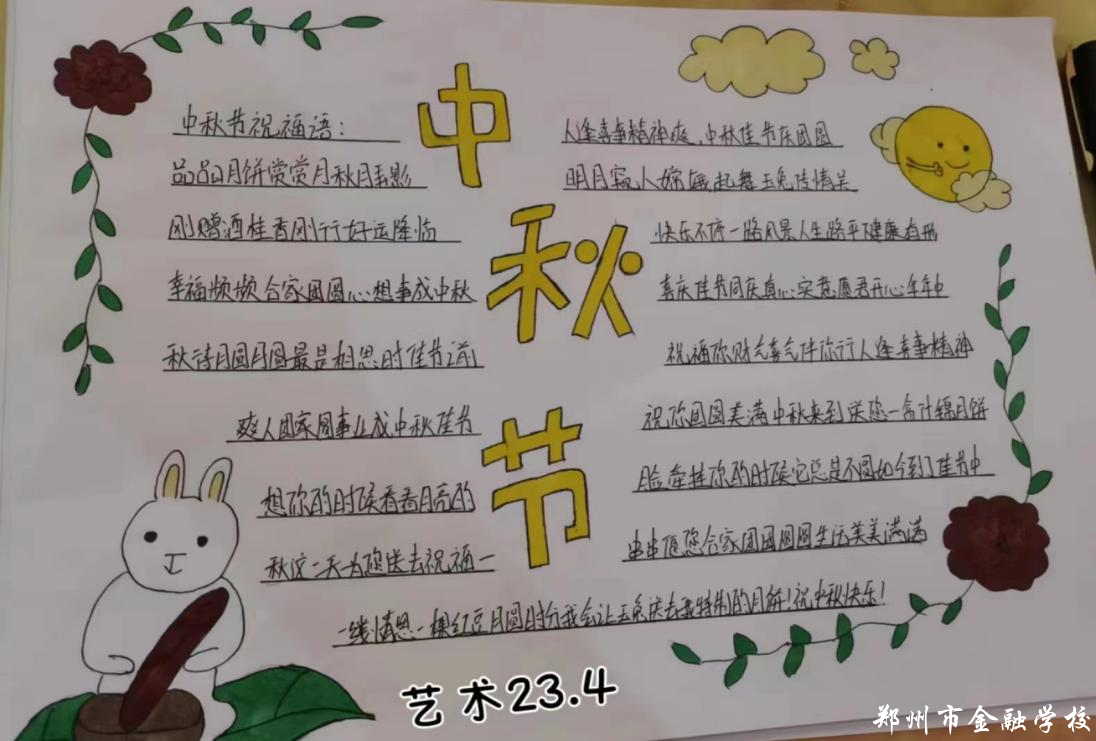 中秋节
中秋节祝福语:
品品月饼赏赏月秋月弄影
刚赠酒桂香刚行好运降临
幸福频频合家团圆心想事成中秋
秋待月圆月圆最是相思时佳节前
爽人团家圆事业成中秋佳节
想你的时候看看月亮的
秋这一天为您送去祝福一
人逢喜事精神爽,中秋佳节乐团圆
明月窥人嫦娥起舞玉兔传情吴
快乐不停一路风景人生路平健康
喜庆佳节同庆真心实意愿君开心年年中
祝福你财气喜气伴你行人逢喜事精神
祝你团圆美满中秋来到送您一含计锦月饼
脸牵挂你的时候它总是不圆如今到了佳节中
串串愿您合家团团圆圆生活美美满满
一缕情思一棵红豆月圆时分我会让玉兔送去我特制的月饼!祝中秋快乐!
艺术23.4
郑州市金融学校